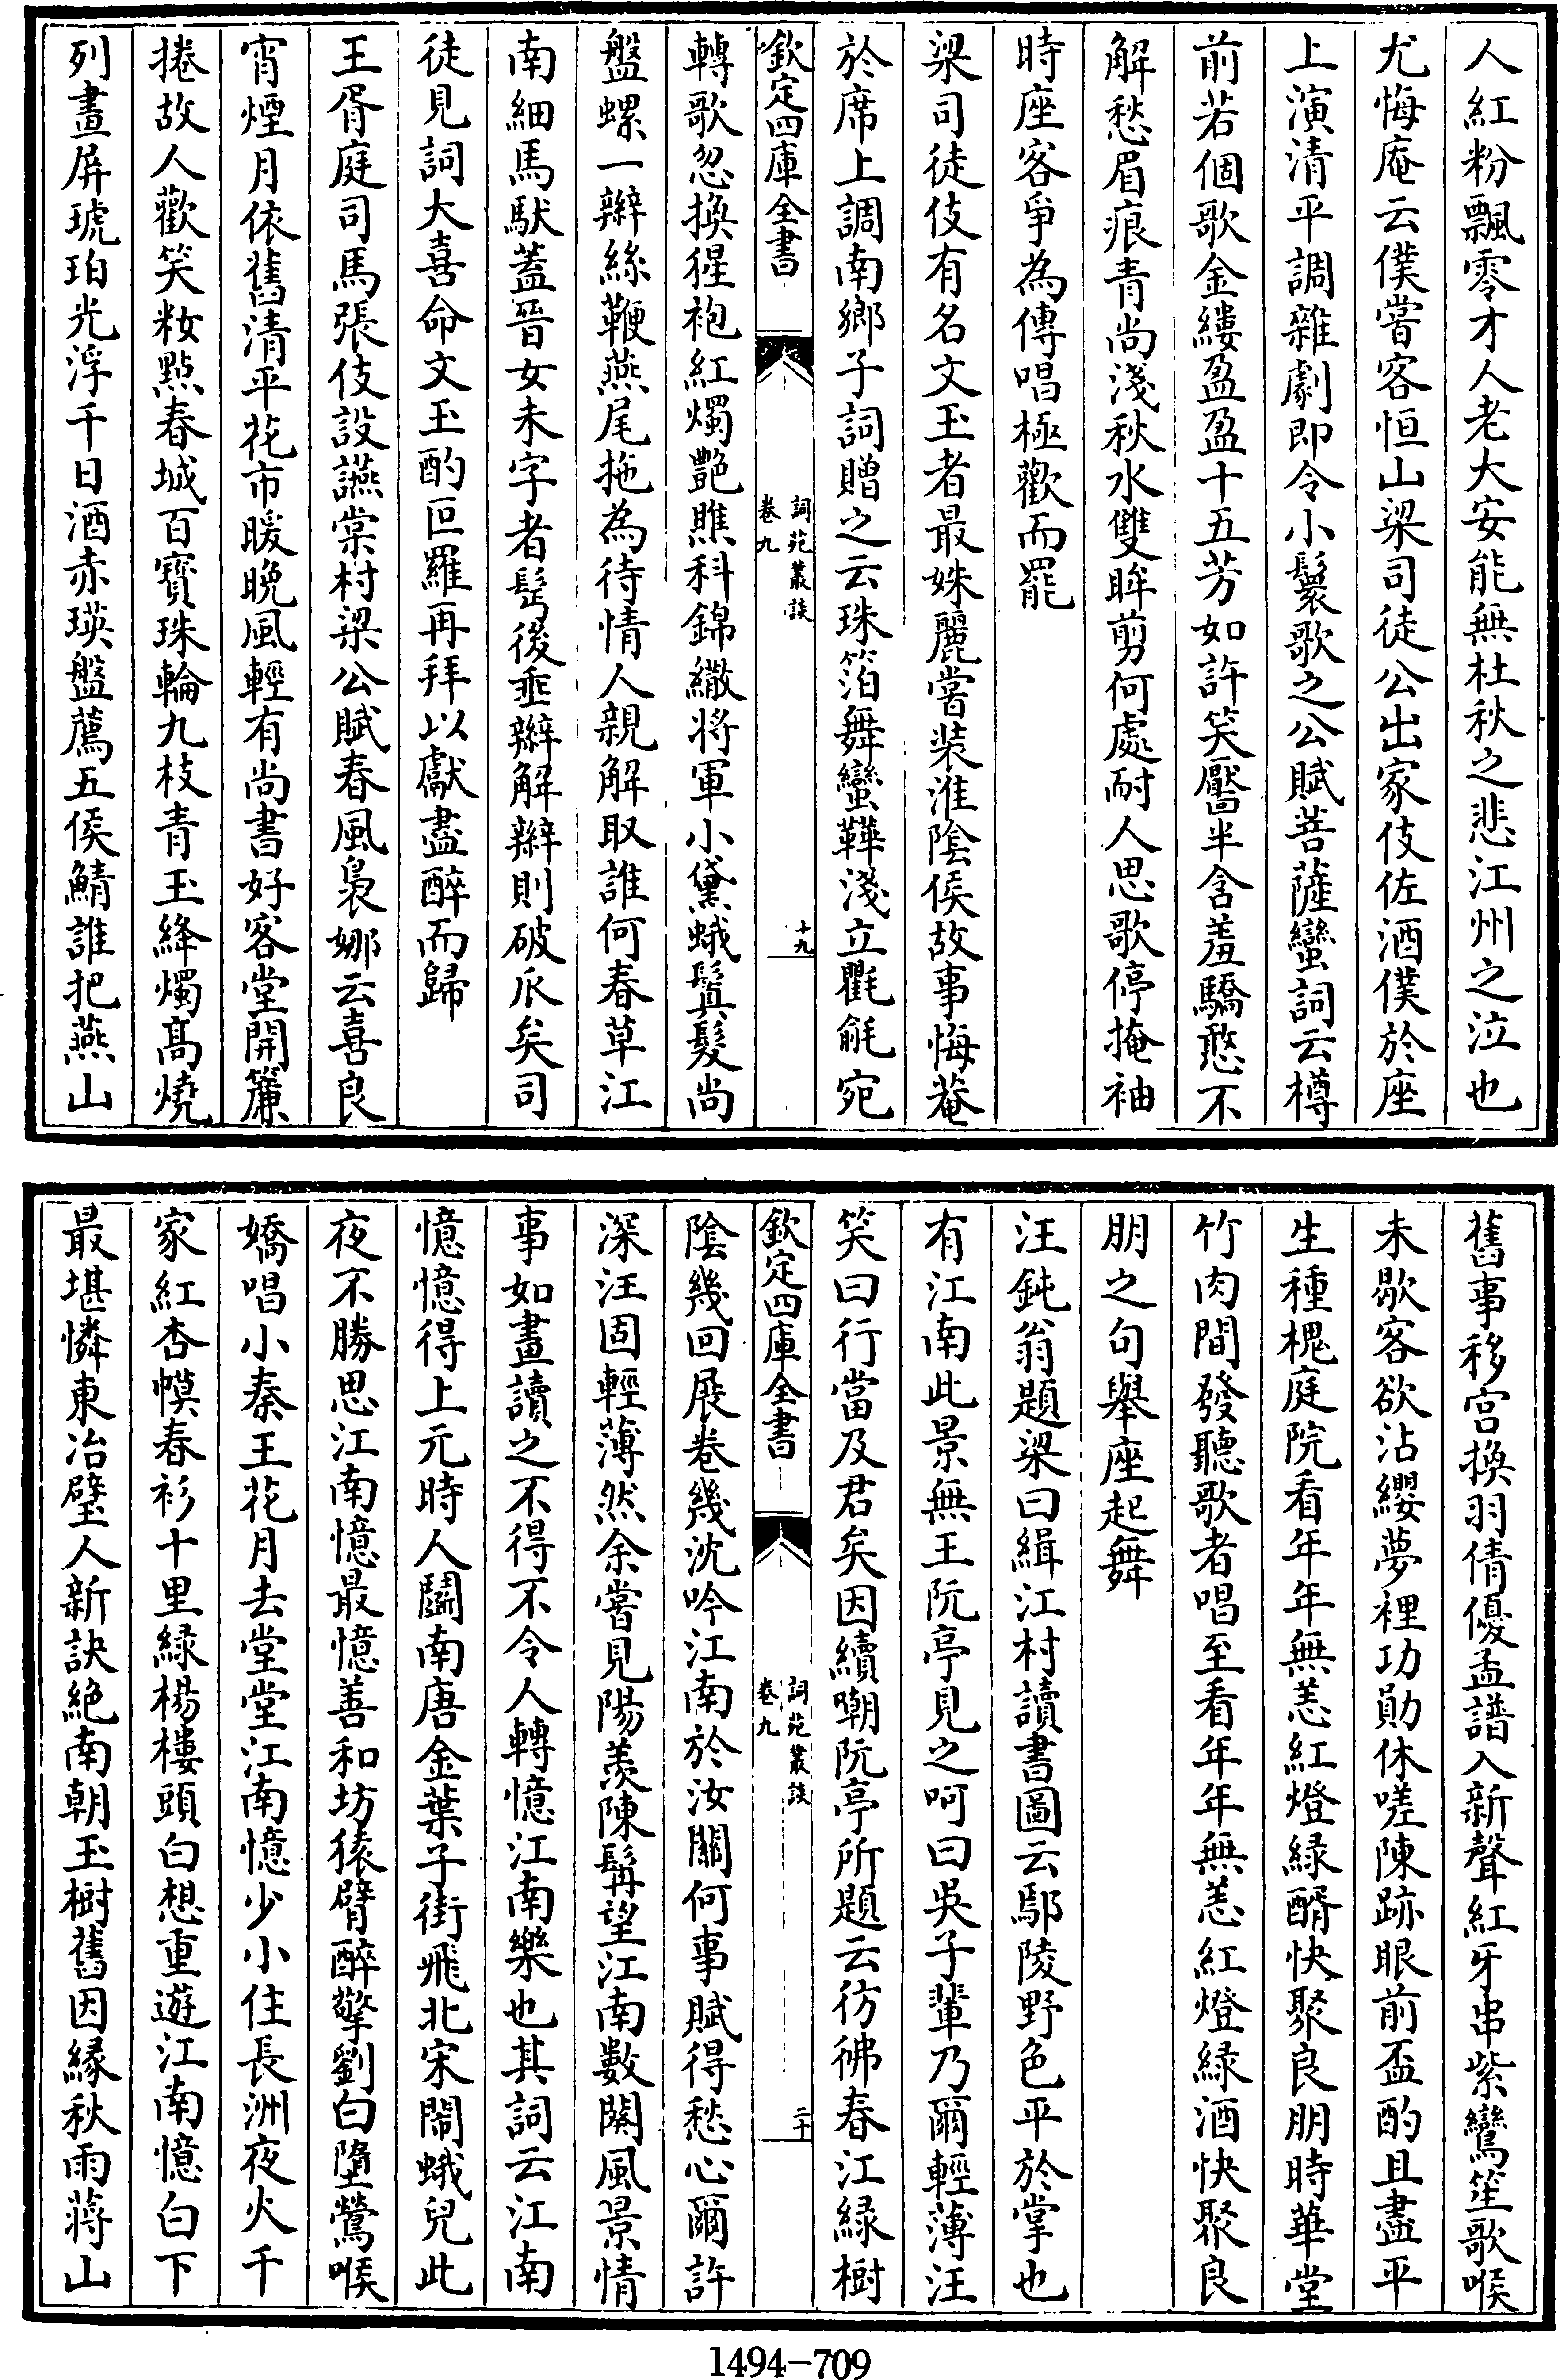 人紅粉飄零才人老大安能無杜秋之悲江州之泣也
尤悔庵云僕嘗客恒山梁司徒公出家伎佐酒僕於座
上演清平調雜劇即令小鬟歌之公賦菩薩蠻詞云樽
前若個歌金縷盈盈十五芳如許笑靨半含羞驕憨不
解愁眉痕青尚淺秋水雙眸剪何處耐人思歌停掩袖
時座客爭為傳唱極歡而罷
梁司徒伎有名文玉者最姝麗嘗裝淮陰侯故事悔菴
於席上調南鄉子詞贈之云珠箔舞蠻鞾淺立氍毹宛
欽定四庫全書
詞苑叢談
卷九
十九
轉歌忽換猩袍紅燭艷瞧科錦繖将軍小黛蛾鬒髮尚
盤螺一辮絲鞭燕尾拖為待情人親解取誰何春草江
南細馬馱蓋晉女未字者髩後垂辮解辮則破瓜矣司
徒見詞大喜命文玉酌叵羅再拜以獻盡醉而歸
王胥庭司馬張伎設讌棠村梁公賦春風裊娜云喜良
宵煙月依舊清平花市暖晚風輕有尚書好客堂開簾
捲故人歡笑粧點春城百寶珠輪九枝青玉絳燭高燒
列畫屏琥珀光浮千日酒赤瑛盤薦五侯鯖誰把燕山
舊事移宮換羽倩優孟譜入新聲紅牙串紫鸞笙歌喉
未歇客欲沾纓夢裡功勛休嗟陳跡眼前盃酌且盡平
生種槐庭院看年年無恙紅燈緑醑快聚良朋時華堂
竹肉間發聽歌者唱至看年年無恙紅燈緑酒快聚良
朋之句舉座起舞
汪鈍翁題梁曰緝江村讀書圖云鄢陵野色平於掌也
有江南此景無王阮亭見之呵曰吳子輩乃爾輕薄汪
笑曰行當及君矣因續嘲阮亭所題云彷彿春江緑樹
欽定四庫全書
詞苑叢談
卷九
二十
陰幾回展卷幾沈吟江南於汝關何事賦得愁心爾許
深汪固輕薄然余嘗見陽羨陳髯望江南數闋風景情
事如畫讀之不得不令人轉憶江南樂也其詞云江南
憶憶得上元時人鬭南唐金葉子街飛北宋鬧蛾兒此
夜不勝思江南憶最憶善和坊猿臂醉擎劉白墮鶯喉
嬌唱小秦王花月去堂堂江南憶少小住長洲夜火千
家紅杏幙春衫十里緑楊樓頭白想重遊江南憶白下
最堪憐東冶璧人新訣絶南朝玉樹舊因緣秋雨蔣山
1494-709